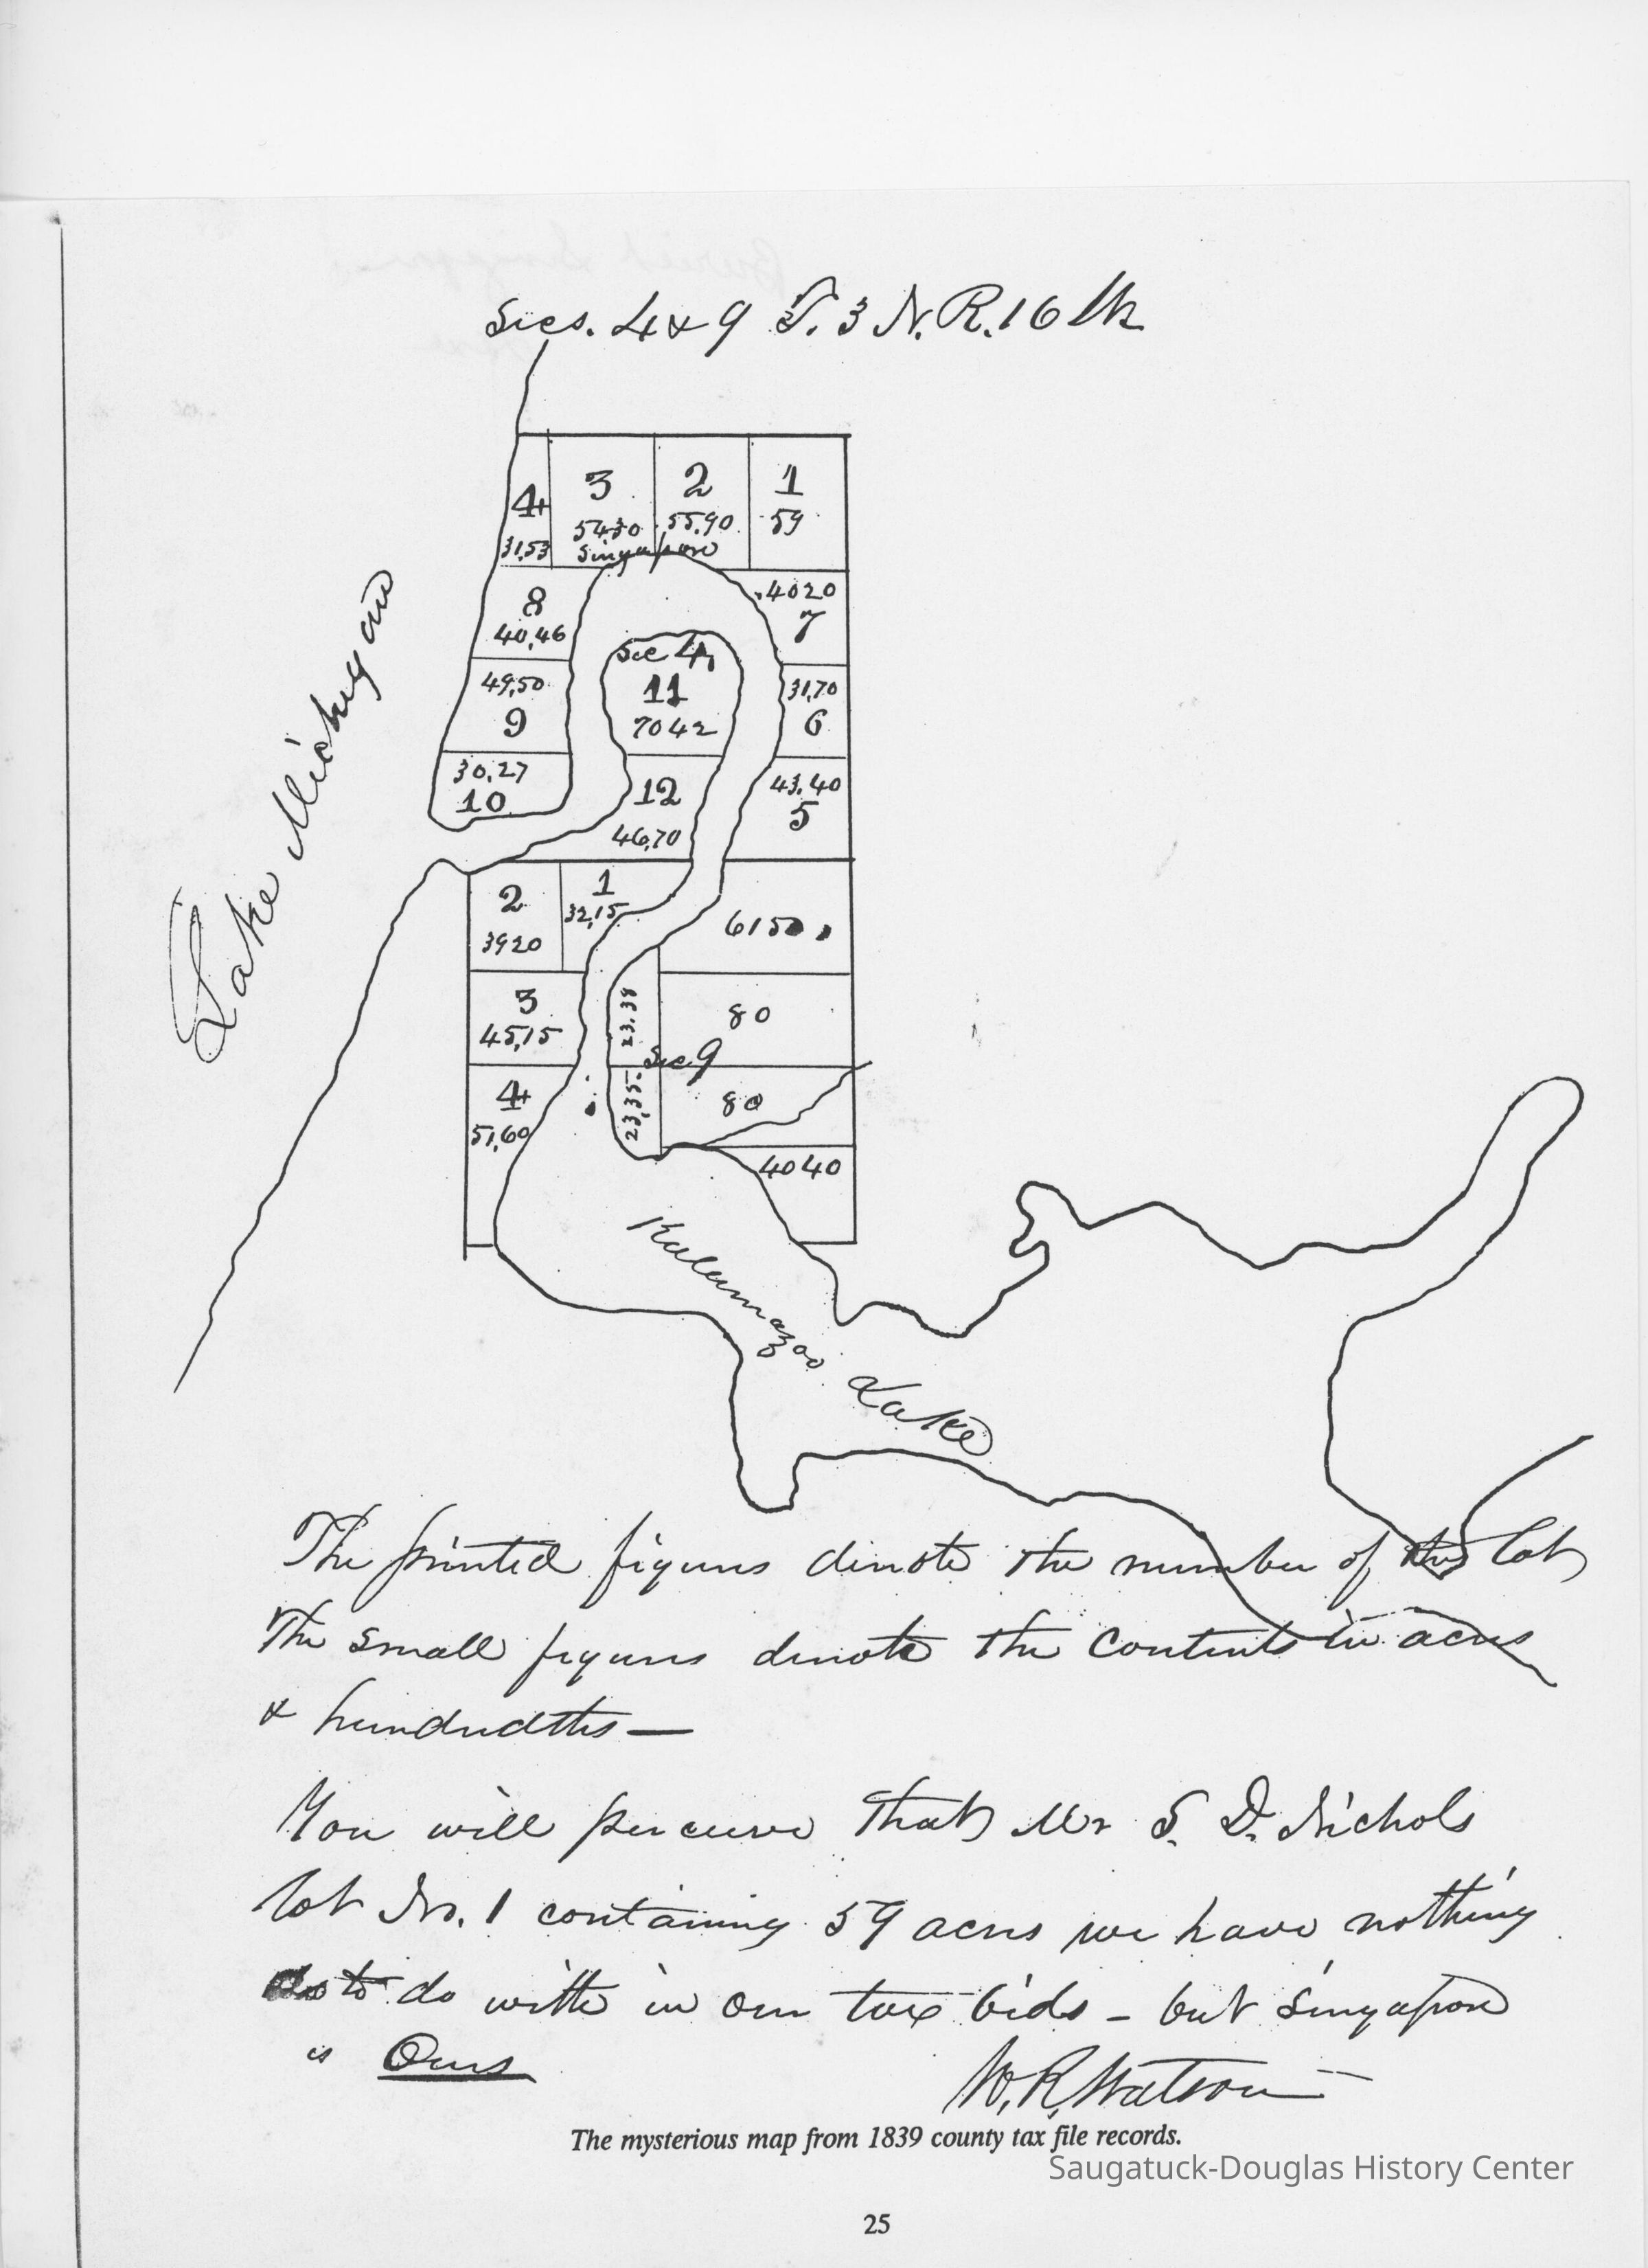 Secs. 4 & 9 T. 3 N. R. 16 W.
4 3 2 1
31,53 54.30 55.90 59
Singapore
8
40,46
4020
7
Sec 4,
11
7042
49,50
9
31,70
6
30,27
10
12
46,70
43.40
5
Lake Michigan
2
3920
1
32,15
6150
3
45,15
23.39
80
Sec 9
4
51,60
23,35.
80
4040
Kalamazoo Lake
The printed figures denote the number of the lot,
The small figures denote the contents in acres
& hundredths —
You will perceive that Mr S. D. Nichols
lot No. 1 containing 59 acres we have nothing
to do with in our tax bids - but Singapore
is Ours
W. R. Watson
The mysterious map from 1839 county tax file records.
Saugatuck-Douglas History Center
25